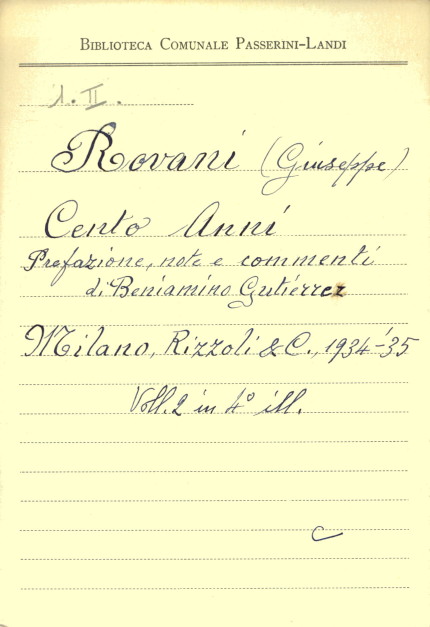 BIBLIOTECA COMUNALE PASSERINI-LANDI
1. II.
Rovani (Giuseppe)
Cento Anni
Prefazione, note e commenti
di Beniamino Gutiérrez
Milano, Rizzoli & C., 1934-'35
Voll. 2 in 4° ill.
C